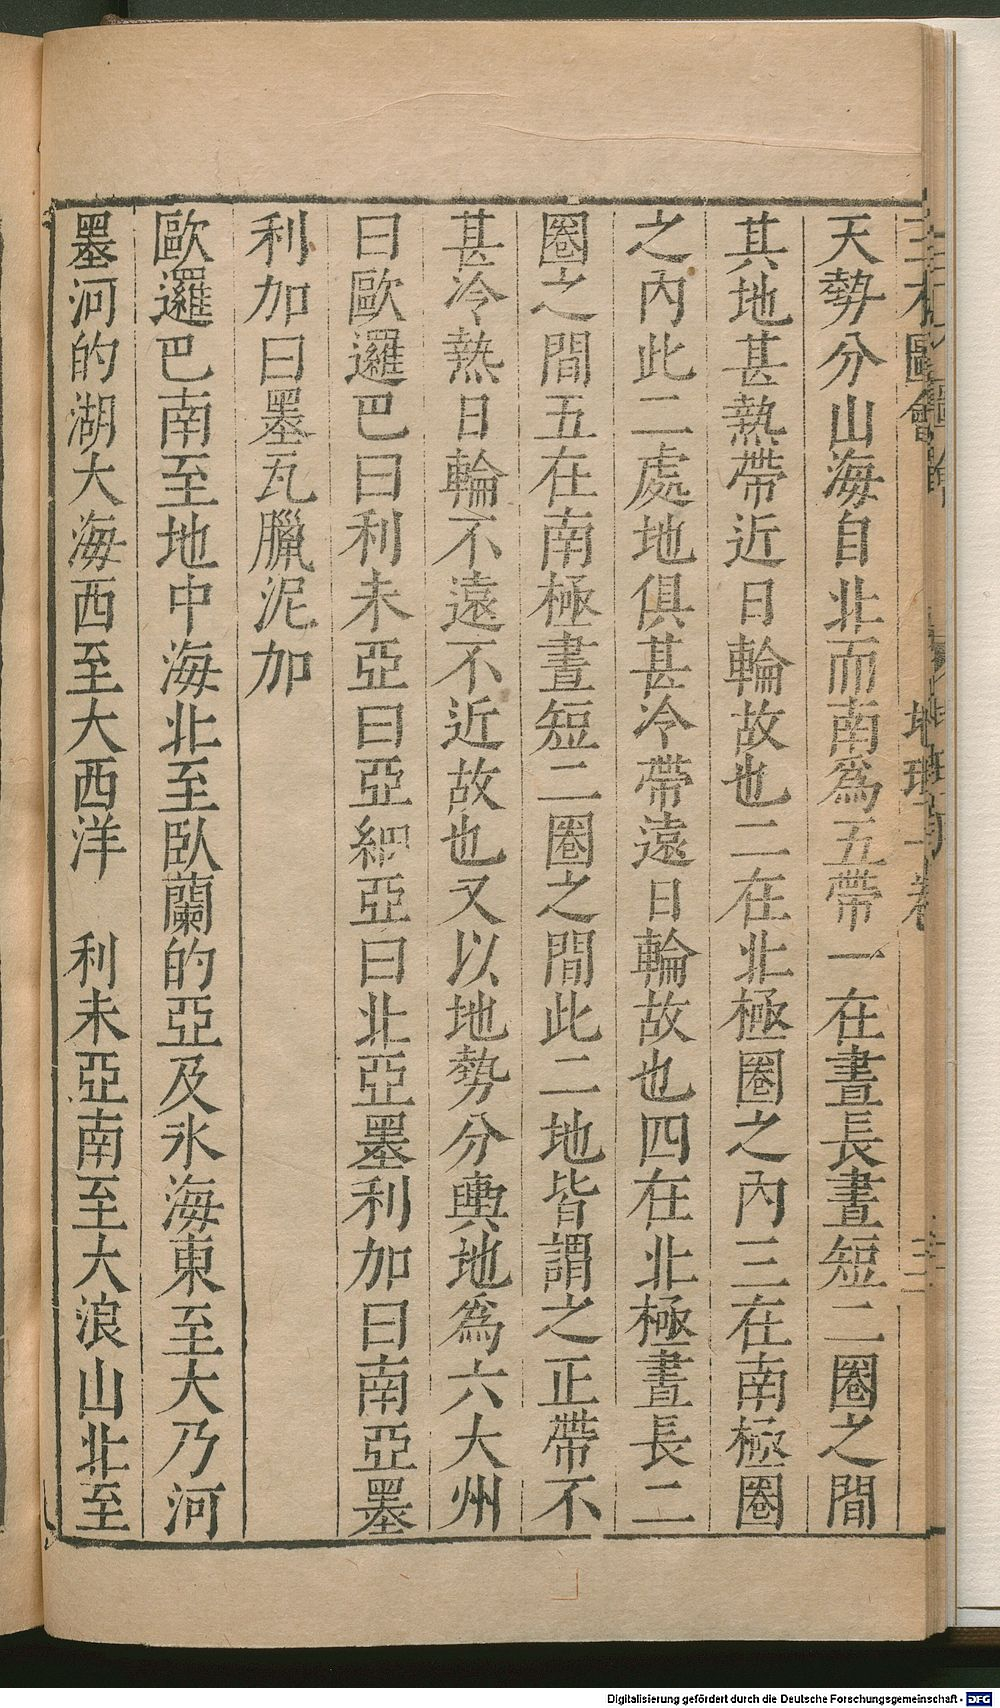 三才圖會
地理一卷
天勢分山海自北而南爲五帶一在晝長晝短二圈之間
其地甚熱帶近日輪故也二在北極圈之內三在南極圈
之內此二處地俱甚冷帶遠日輪故也四在北極晝長二
圈之間五在南極晝短二圈之間此二地皆謂之正帶不
甚冷熱日輪不遠不近故也又以地勢分輿地爲六大州
曰歐邏巴曰利未亞曰亞細亞曰北亞墨利加曰南亞墨
利加曰墨瓦臘泥加
歐邏巴南至地中海北至臥蘭的亞及氷海東至大乃河
墨河的湖大海西至大西洋　利未亞南至大浪山北至
Digitalisierung gefördert durch die Deutsche Forschungsgemeinschaft - DFG